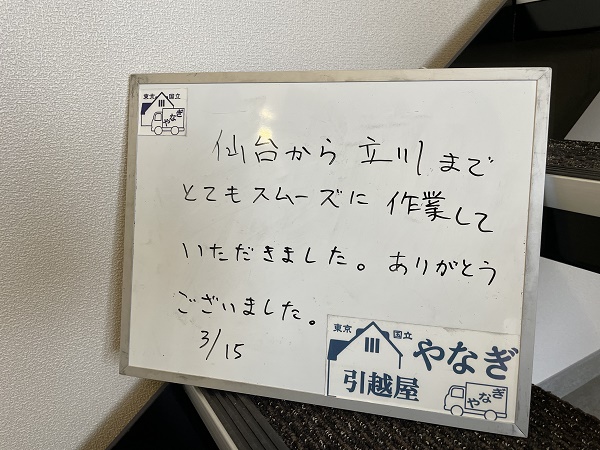 東京 国立
やなぎ
仙台から立川まで
とてもスムーズに作業して
いただきました。ありがとう
ございました。
3/15
東京 国立
やなぎ
引越屋
やなぎ